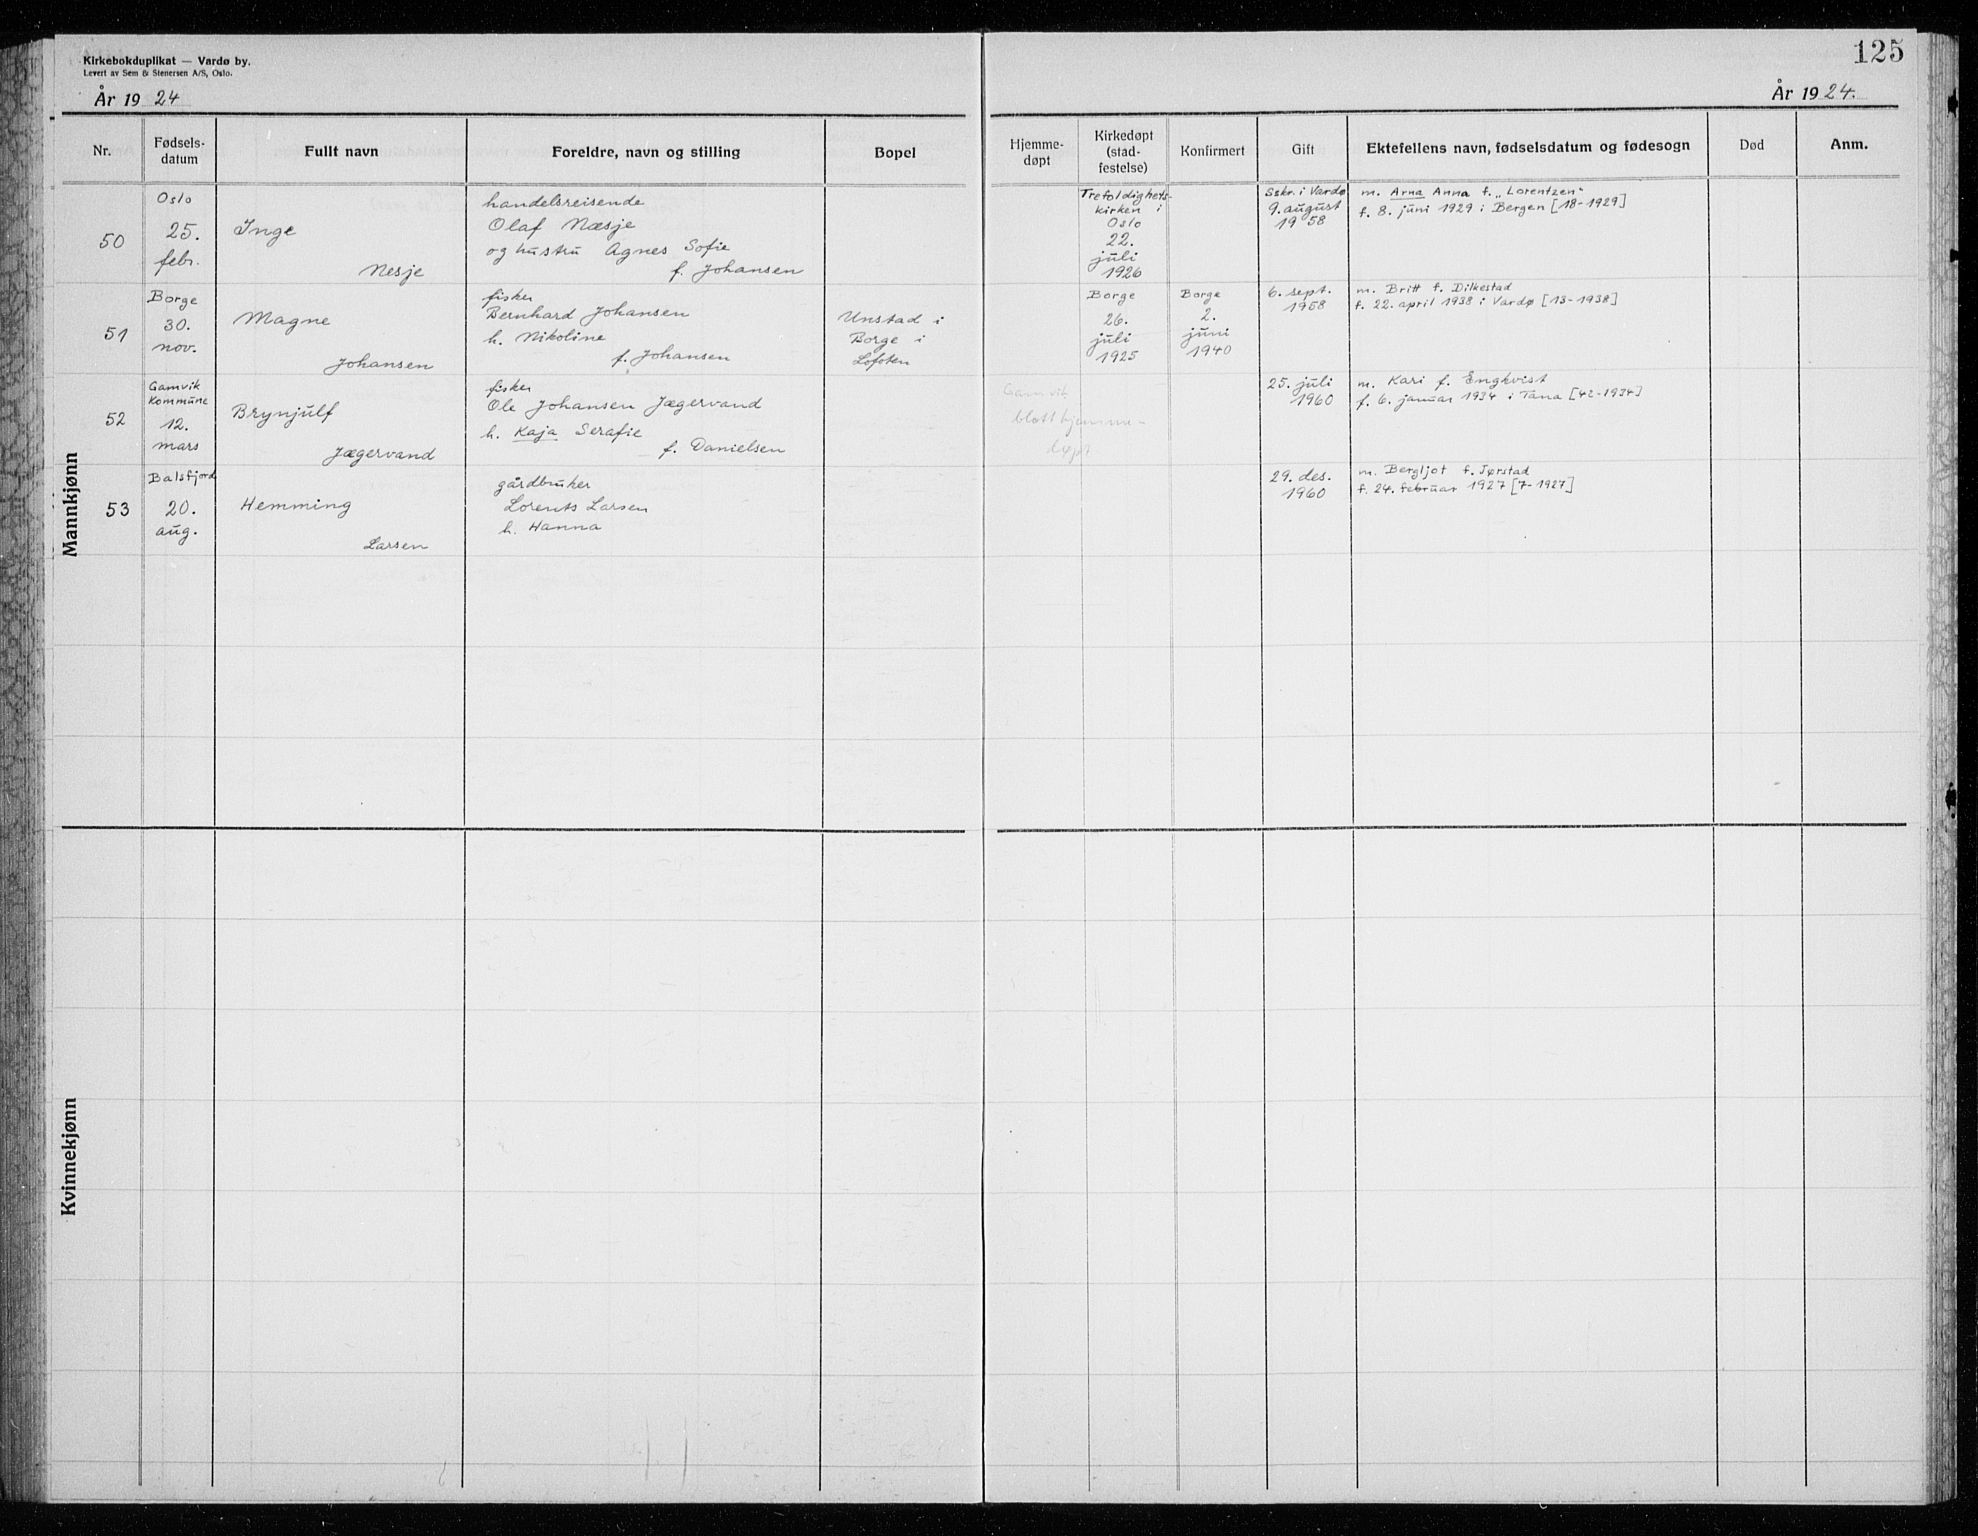 Kirkebokduplikat — Vardø by.
Levert av Sem & Stenersen A/S, Oslo.
År 19 24
Nr.
Fødsels-
datum
Fullt navn
Foreldre, navn og stilling
Bopel
Mannkjønn
50
Oslo
25.
febr.
Inge
Nesje
handelsreisende
Olaf Næsje
og hustru Agnes Sofie
f. Johansen
51
Borge
30.
nov.
Magne
Johansen
fisker
Bernhard Johansen
h. Nikoline
f. Johansen
Unstad i
Borge i
Lofoten
52
Gamvik
Kommune
12.
mars
Brynjulf
Jægervand
fisker
Ole Johansen Jægervand
h. Kaja Serafie
f. Danielsen
53
Balsfjord
20.
aug.
Hemming
Larsen
gårdbruker
Lorents Larsen
h. Hanna
Kvinnekjønn
125
År 19 24.
Hjemme-
døpt
Kirkedøpt
(stad-
festelse)
Konfirmert
Gift
Ektefellens navn, fødselsdatum og fødesogn
Død
Anm.
Trefoldighets-
kirken i
Oslo
22.
juli
1926
Sskr. i Vardø
9. august
1958
m. Arna Anna f. „Lorentzen"
f. 8. juni 1929 i Bergen [18-1929]
Borge
26.
juli
1925
Borge
2.
juni
1940
6. sept.
1958
m. Britt f. Dilkestad
f. 22. april 1938 i Vardø [13-1938]
Gamvik
blott hjemme-
døpt
25. juli
1960
m. Kari f. Engkvist
f. 6. januar 1934 i Tana [42-1934]
29. des.
1960
m. Bergljot f. Jørstad
f. 24. februar 1927 [7-1927]